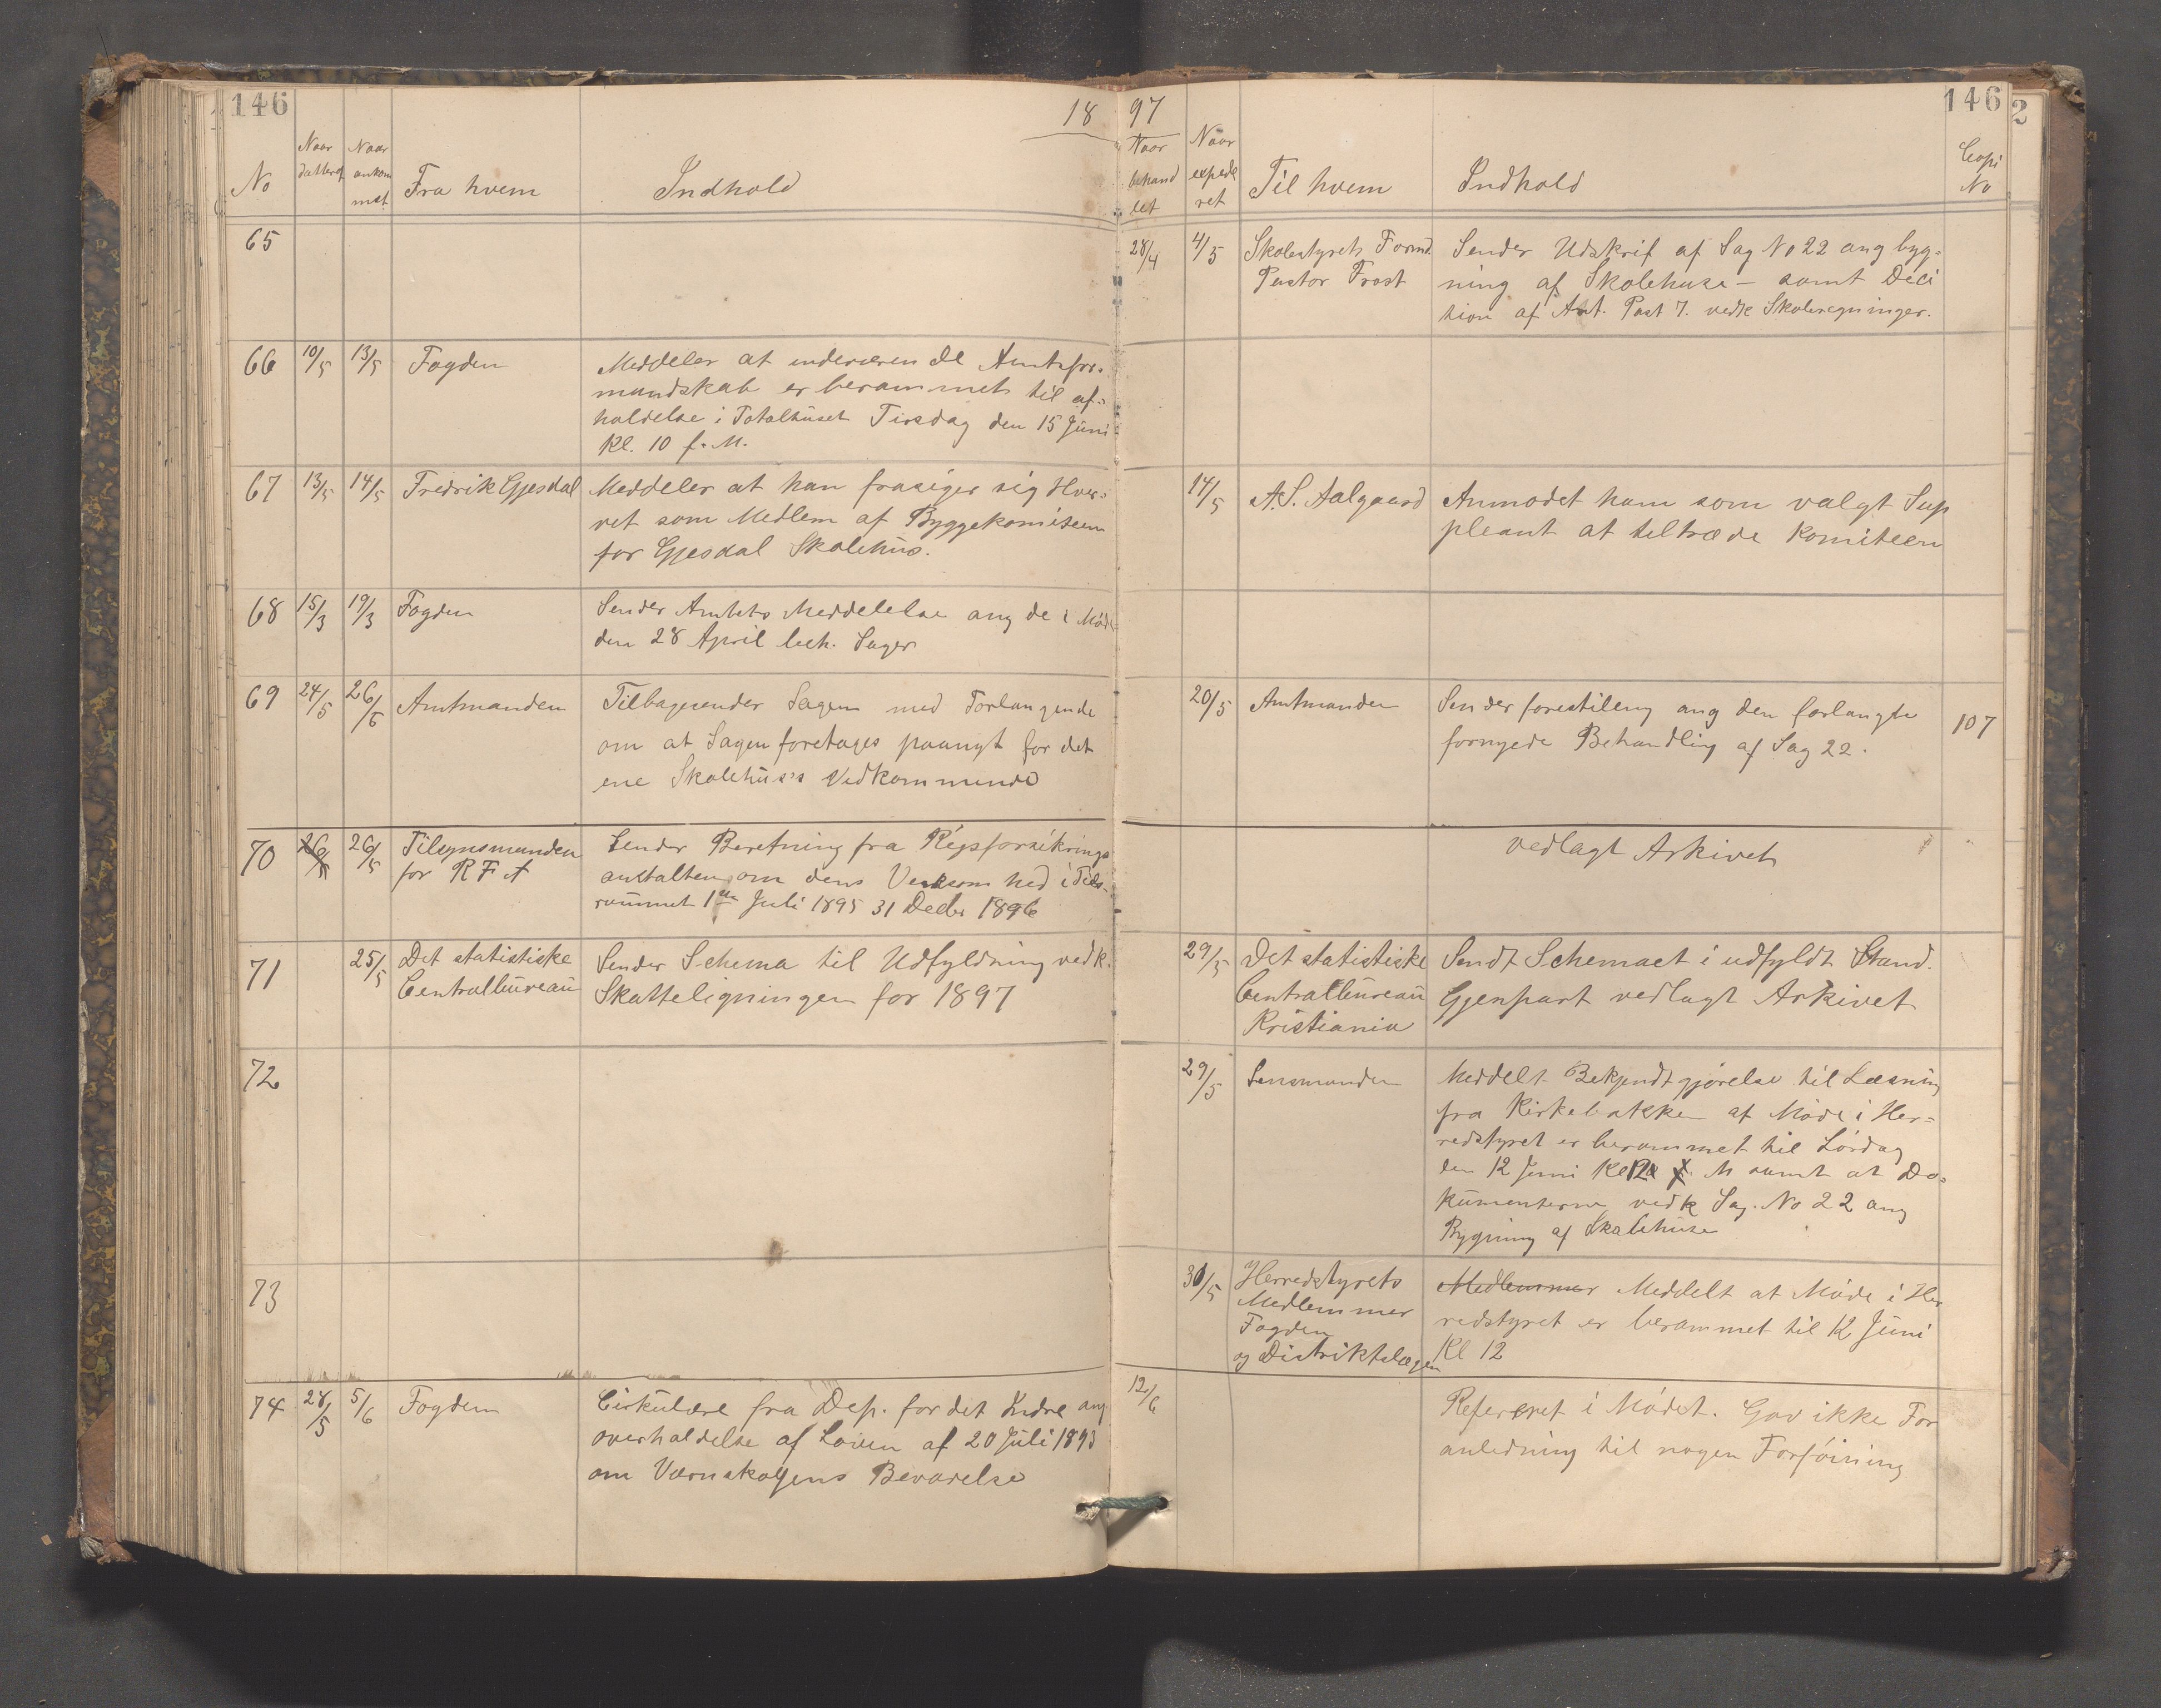 146
18 97
146
2
No
Naar datteret
Naar ankommet
Fra hvem
Indhold
Naar behandlet
Naar expederet
Til hvem
Indhold
Copi No
65
28/4
4/5
Skolestyrets Formd.
Pastor Frost
Sender Udskrif af Sag No 22 ang byg=
ning af Skolehuse - samt Deci
tion af Ant. Post 7. vedk Skoleregninger.
66
10/5
13/5
Fogden
Meddeler at indeværende Amtsfor=
mandskab er berammet til af=
holdelse i Totalhuset Tirsdag den 15 Juni
Kl. 10 f. M.
67
13/5
14/5
Fredrik Gjesdal
Meddeler at han frasiger sig Hver=
vet som Medlem af Byggekomiteen
for Gjesdal Skolehus.
14/5
A. S. Aalgaard
Anmodet ham som valgt Sup
pleant at tiltræde Komiteen
68
15/3
19/3
Fogden
Sender Amtets Meddelelse ang de i Møde
den 28 April beh. Sager
69
24/5
26/5
Amtmanden
Tilbagesender Sagen med Forlangende
om at Sagen foretages paanyt for det
ene Skolehus's Vedkommende
20/5
Amtmanden
Sender forestilling ang den forlangte
fornyede Behandling af Sag 22.
107
70
26/5
26/5
Tilsynsmanden
for R F A
Sender Beretning fra Rigsforsikrings
anstalten om dens Virksomhed i Tids-
rummet 1ste Juli 1895 31 Decbr 1896
vedlagt Arkivet
71
25/5
Det statistiske
Centralbureau
Sender Schema til Udfyldning vedk.
Skatteligningen for 1897
29/5
Det statistiske
Centralbureau
Kristiania
Sendt Schemaet i udfyldt Stand.
Gjenpart vedlagt Arkivet
72
29/5
Lensmanden
Meddelt Bekjendtgjørelse til Læsning
fra Kirkebakken at Møde i Her=
redstyret er berammet til Lørdag
den 12 Juni Kl 12 M samt at Do=
kumenterne vedk Sag. No 22 ang
Bygning af Skolehuse
73
30/5
Herredstyrets
Medlemmer
Fogden
og Distriktslægen
Medlemmer Meddelt at Møde i Her
redstyret er berammet til 12 Juni
Kl 12
74
28/5
5/6
Fogden
Cirkulære fra Dep. for det Indre ang
overholdelse af Loven af 20 Juli 1893
om Værnskogens Bevarelse
12/6
Refereret i Mødet. Gav ikke For
anledning til nogen Forføining